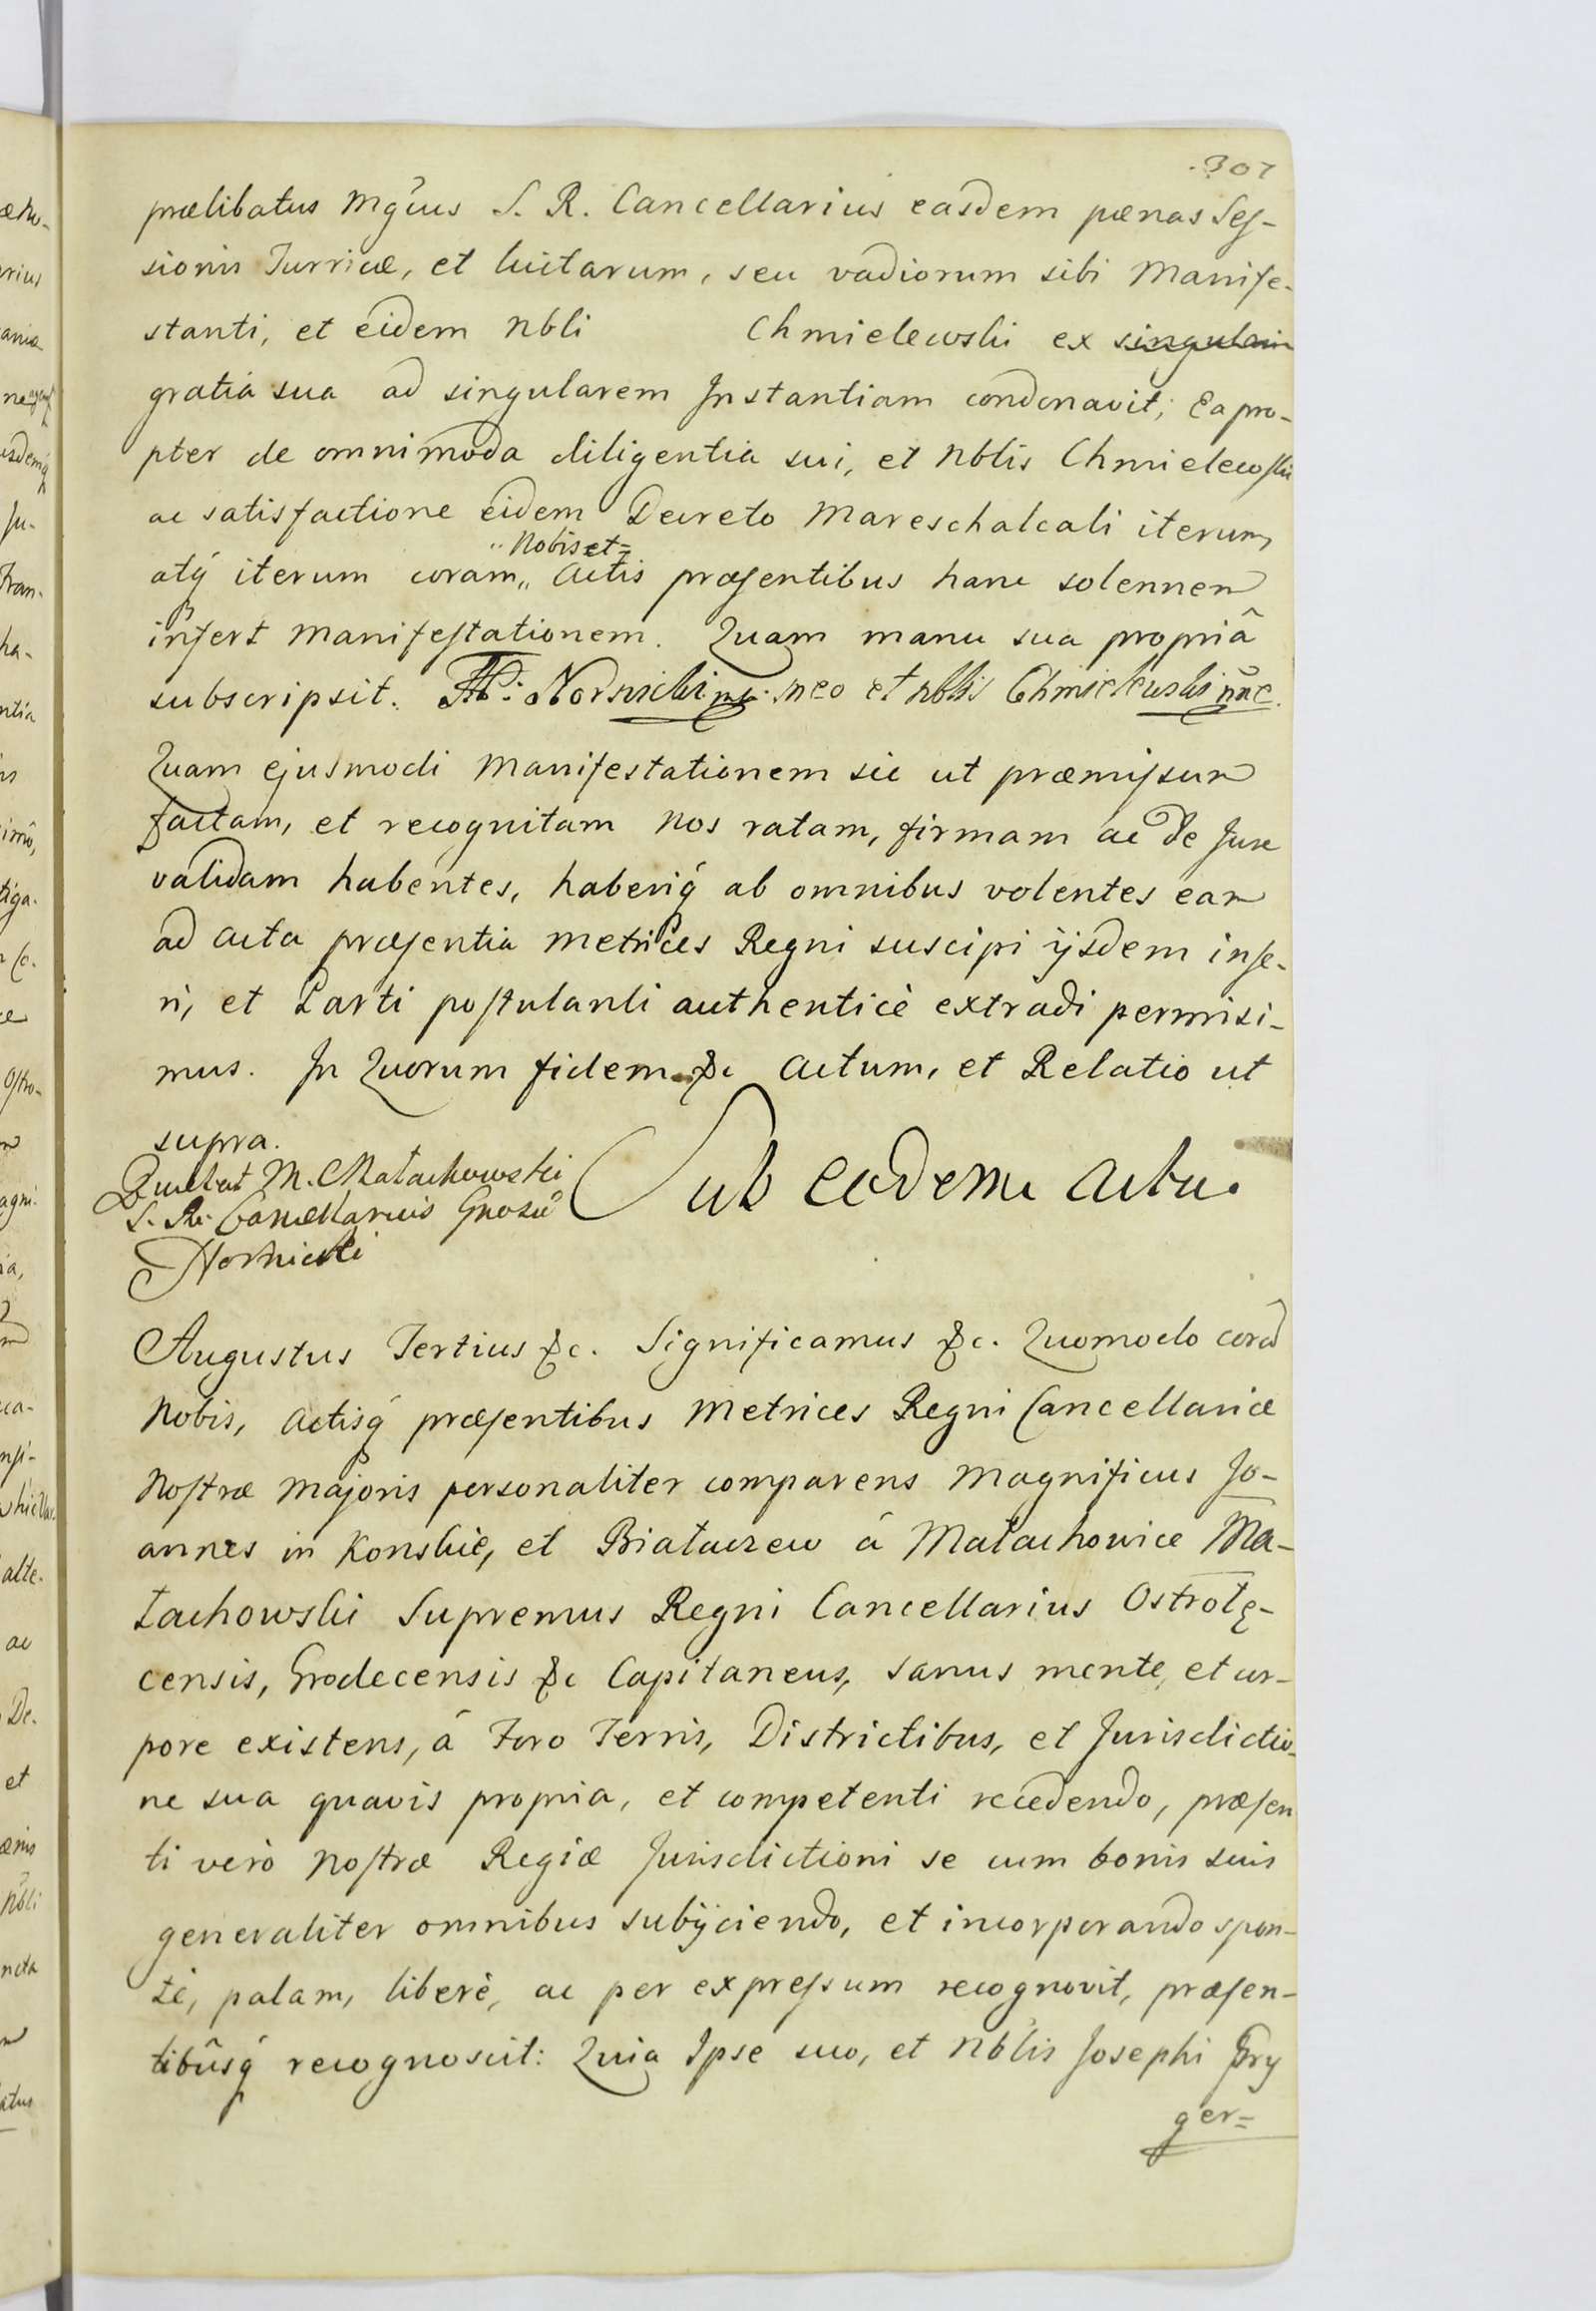 307
prælibatus Mgcus S. R. Cancellarius easdem pœnas Ses-
sionis Turricæ, et luitarum, seu vadiorum sibi Manife-
stanti, et eidem Nbli Chmielewski ex singulari
gratia sua ad singularem Instantiam condonavit; Ea pro-
pter de omnimoda diligentia sui, et Nblis Chmielewski
ac satisfactione eidem Decreto Mareschalcali iterum,
atq́ iterum coram „ Nobis et = Actis præsentibus hanc solennem
infert Manifestationem. Quam manu sua propriâ
subscripsit. Nornicki mp. meo et nblis Chmielewski nne.
Quam ejusmodi Manifestationem sic ut præmissum
factam, et recognitam Nos ratam, firmam ac de Jure
validam habentes, haberiq́ ab omnibus volentes eam
ad Acta præsentia Metrices Regni suscipi ijsdem inse-
ri, et Parti postulanti authenticè extradi permisi-
mus. In Quorum fidem &c Actum, et Relatio ut
supra.
M. Małachowski
S. R. Cancellarius
Nornicki
Sub eodem Actu.
Augustus Tertius &c. Significamus &c. Quomodo corã
Nobis, Actisq́ præsentibus Metrices Regni Cancellariæ
Nostræ Majoris personaliter comparens Magnificus Jo-
annes in Konskie, et Białaczew á Małachowice Ma-
łachowski Supremus Regni Cancellarius Ostrołę-
censis, Grodecensis &c Capitaneus, sanus mente, et cor-
pore existens, á Foro Terris, Districtibus, et Jurisdictio-
ne sua quavis propria, et competenti recedendo, præsen
ti verò Nostræ Regiæ Jurisdictioni se cum bonis suis
generaliter omnibus subijciendo, et incorporando spon-
tè, palam, liberè, ac per expressum recognovit, præsen-
tibûsq́ recognoscit: Quia Ipse suo, et Nblis Josephi Gry
ger=